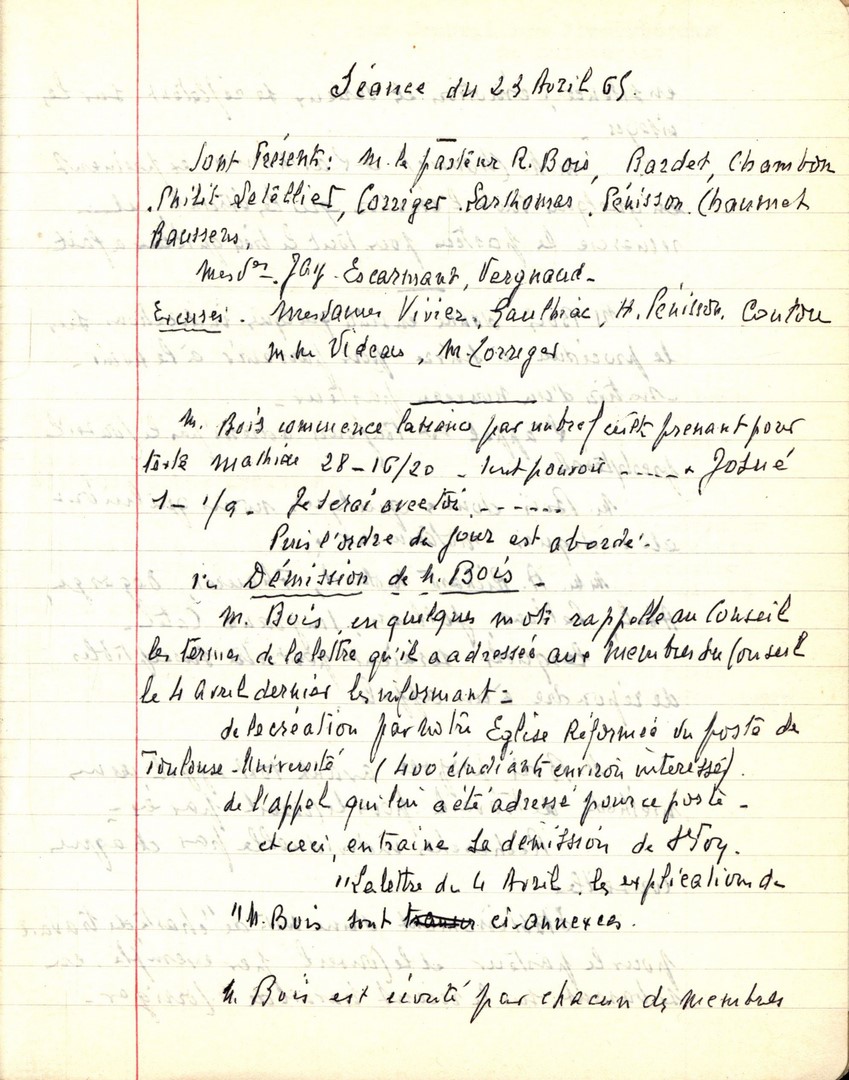 Séance du 23 Avril 65.
Sont Présents: M. le pasteur R. Bois, Bardet, Chambon
Philit Letellier, Corriger. Larthomas, Pénisson. Chaumet
Baussens,
Mesdes. Jay. Escarmant, Vergnaud-
Excusés. Mesdames Vivier, Gaulhiac, H. Pénisson, Couton
M. Videau, M. Corriger
M. Bois commence la séance par un bref culte prenant pour
texte Mathieu 28-16/20 - tout pouvoir ----- + Josué
1- 1/9. Je serai avec toi.------
Puis l'ordre du jour est abordé.-
Démission de M. Bois -
M. Bois, en quelques mots rappelle au Conseil
les termes de la lettre qu'il a adressée aux membres du Conseil
le 4 Avril dernier les informant:
de la création par notre Eglise Réformée du poste de
Toulouse-Université (400 étudiants environ intéressés).
de l'appel qui lui a été adressé pour ce poste -
et ceci, entraine sa démission de Ste Foy.
"La lettre du 4 Avril, les explications de
"M. Bois sont ci-annexées.
M. Bois est écouté par chacun des membres